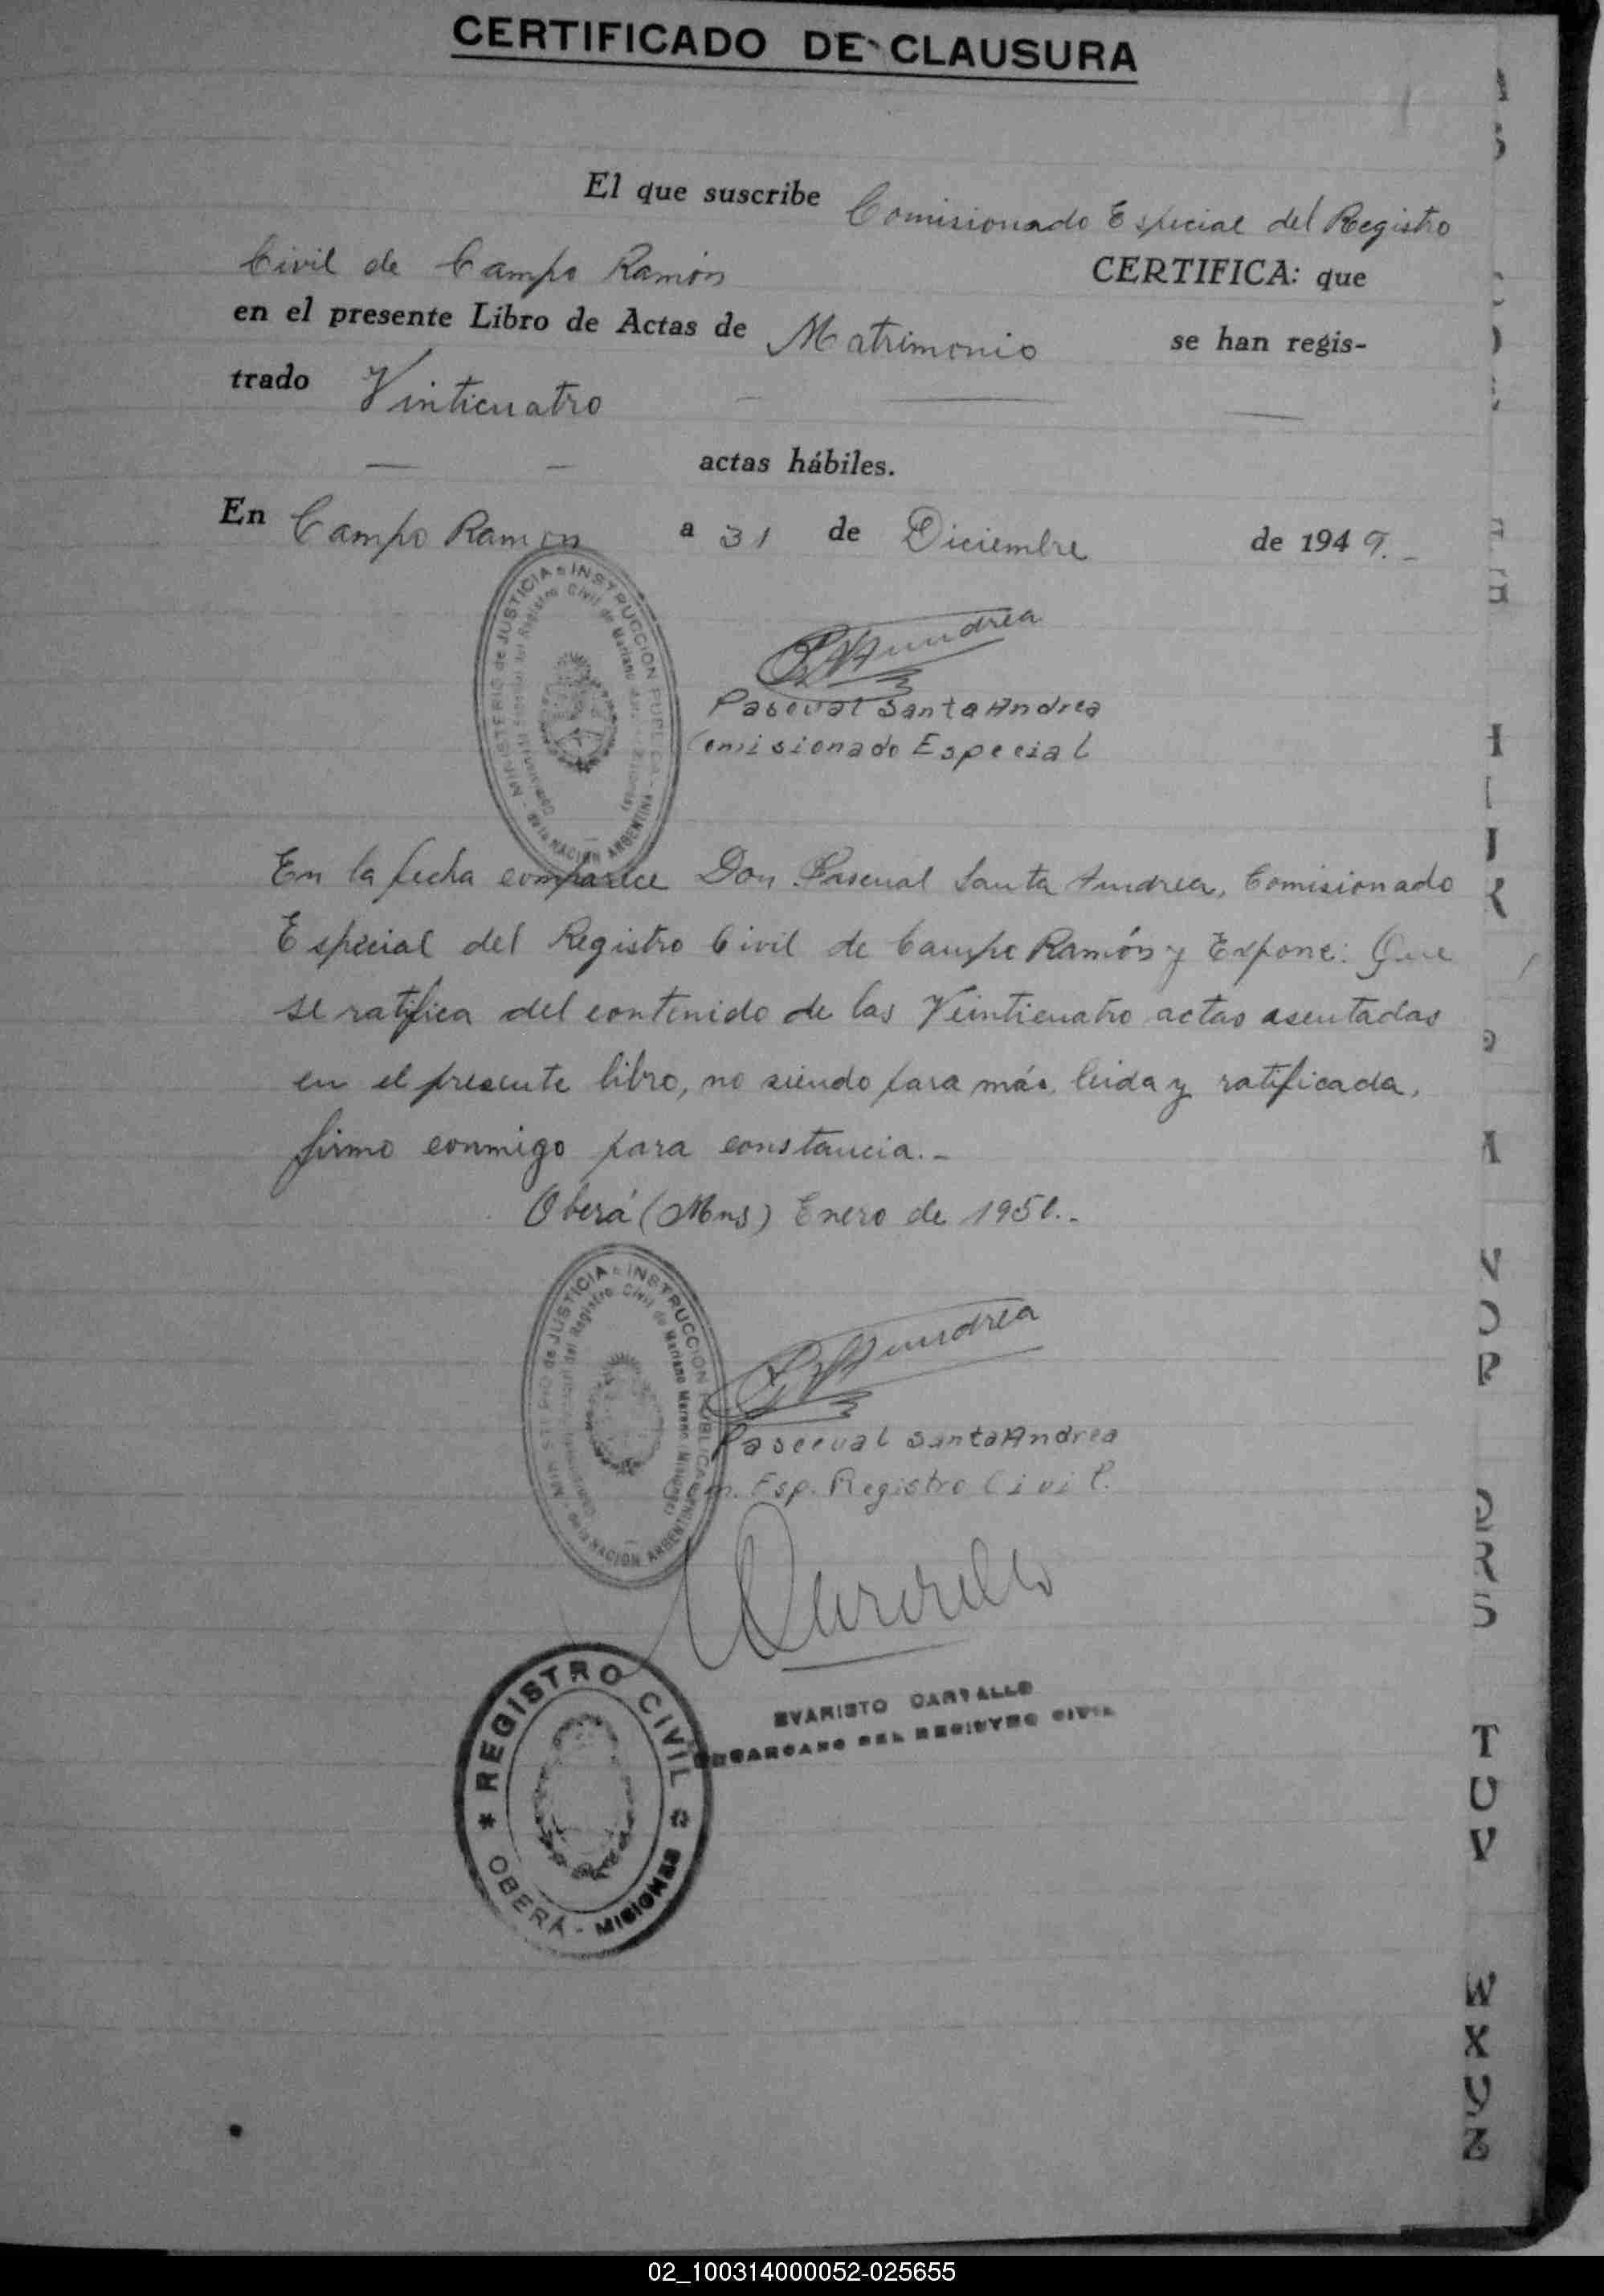 CERTIFICADO DE CLAUSURA
El que suscribe Comisionado Especial del Registro
Civil de Campo Ramón CERTIFICA: que
en el presente Libro de Actas de Matrimonio se han regis-
trado Vinticuatro
actas hábiles.
En Campo Ramon a 31 de Diciembre de 1949.-
MINISTERIO de JUSTICIA e INSTRUCCION PUBLICA - de la NACION ARGENTINA
Pascual Santa Andrea
Comisionado Especial
En la fecha comparece Don Pascual Santa Andrea, Comisionado
Especial del Registro Civil de Campo Ramón y Expone: Que
se ratifica del contenido de las Veinticuatro actas asentadas
en el presente libro, no siendo para más, leida y ratificada,
firmo conmigo para constancia.-
Oberá (Mns) Enero de 1950.-
MINISTERIO de JUSTICIA e INSTRUCCION PUBLICA - de la NACION ARGENTINA
del Registro Civil de Mariano Moreno (Misiones)
Pascual Santa Andrea
Esp. Registro Civil.
EVARISTO CARVALLO
ENCARGADO DEL REGISTRO CIVIL
REGISTRO CIVIL
OBERÁ - MISIONES
T
U
V
W
X
Y
Z
02_100314000052-025655